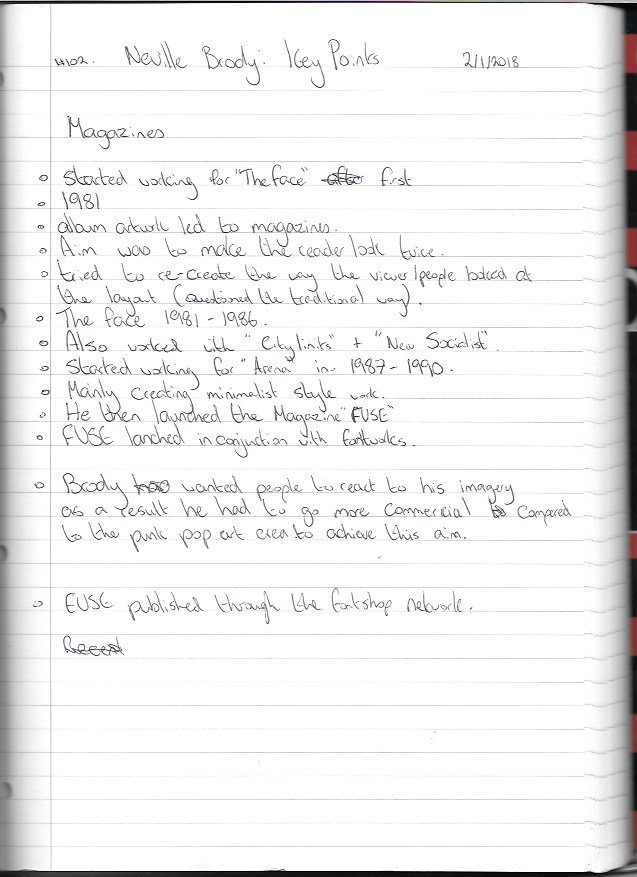 #102. Neville Brody: Key Points 2/1/2018
Magazines
o Started working for "The Face" after first
o 1981
o album artwork led to magazines.
o Aim was to make the reader look twice.
o tried to re-create the way the viewer/people looked at
the layout (questioned the traditional way).
o The face 1981-1986.
o Also worked with "Citylimits" + "New Socialist".
o Started working for "Arena" in 1987-1990.
o Mainly creating minimalist style work.
o He then launched the Magazine "FUSE"
o FUSE lanched in conjunction with fontworks.
o Brody wanted people to react to his imagery
as a result he had to go more commercial to Compared
to the punk pop art area to achieve this aim.
o FUSE published through the fontshop network.
Recent